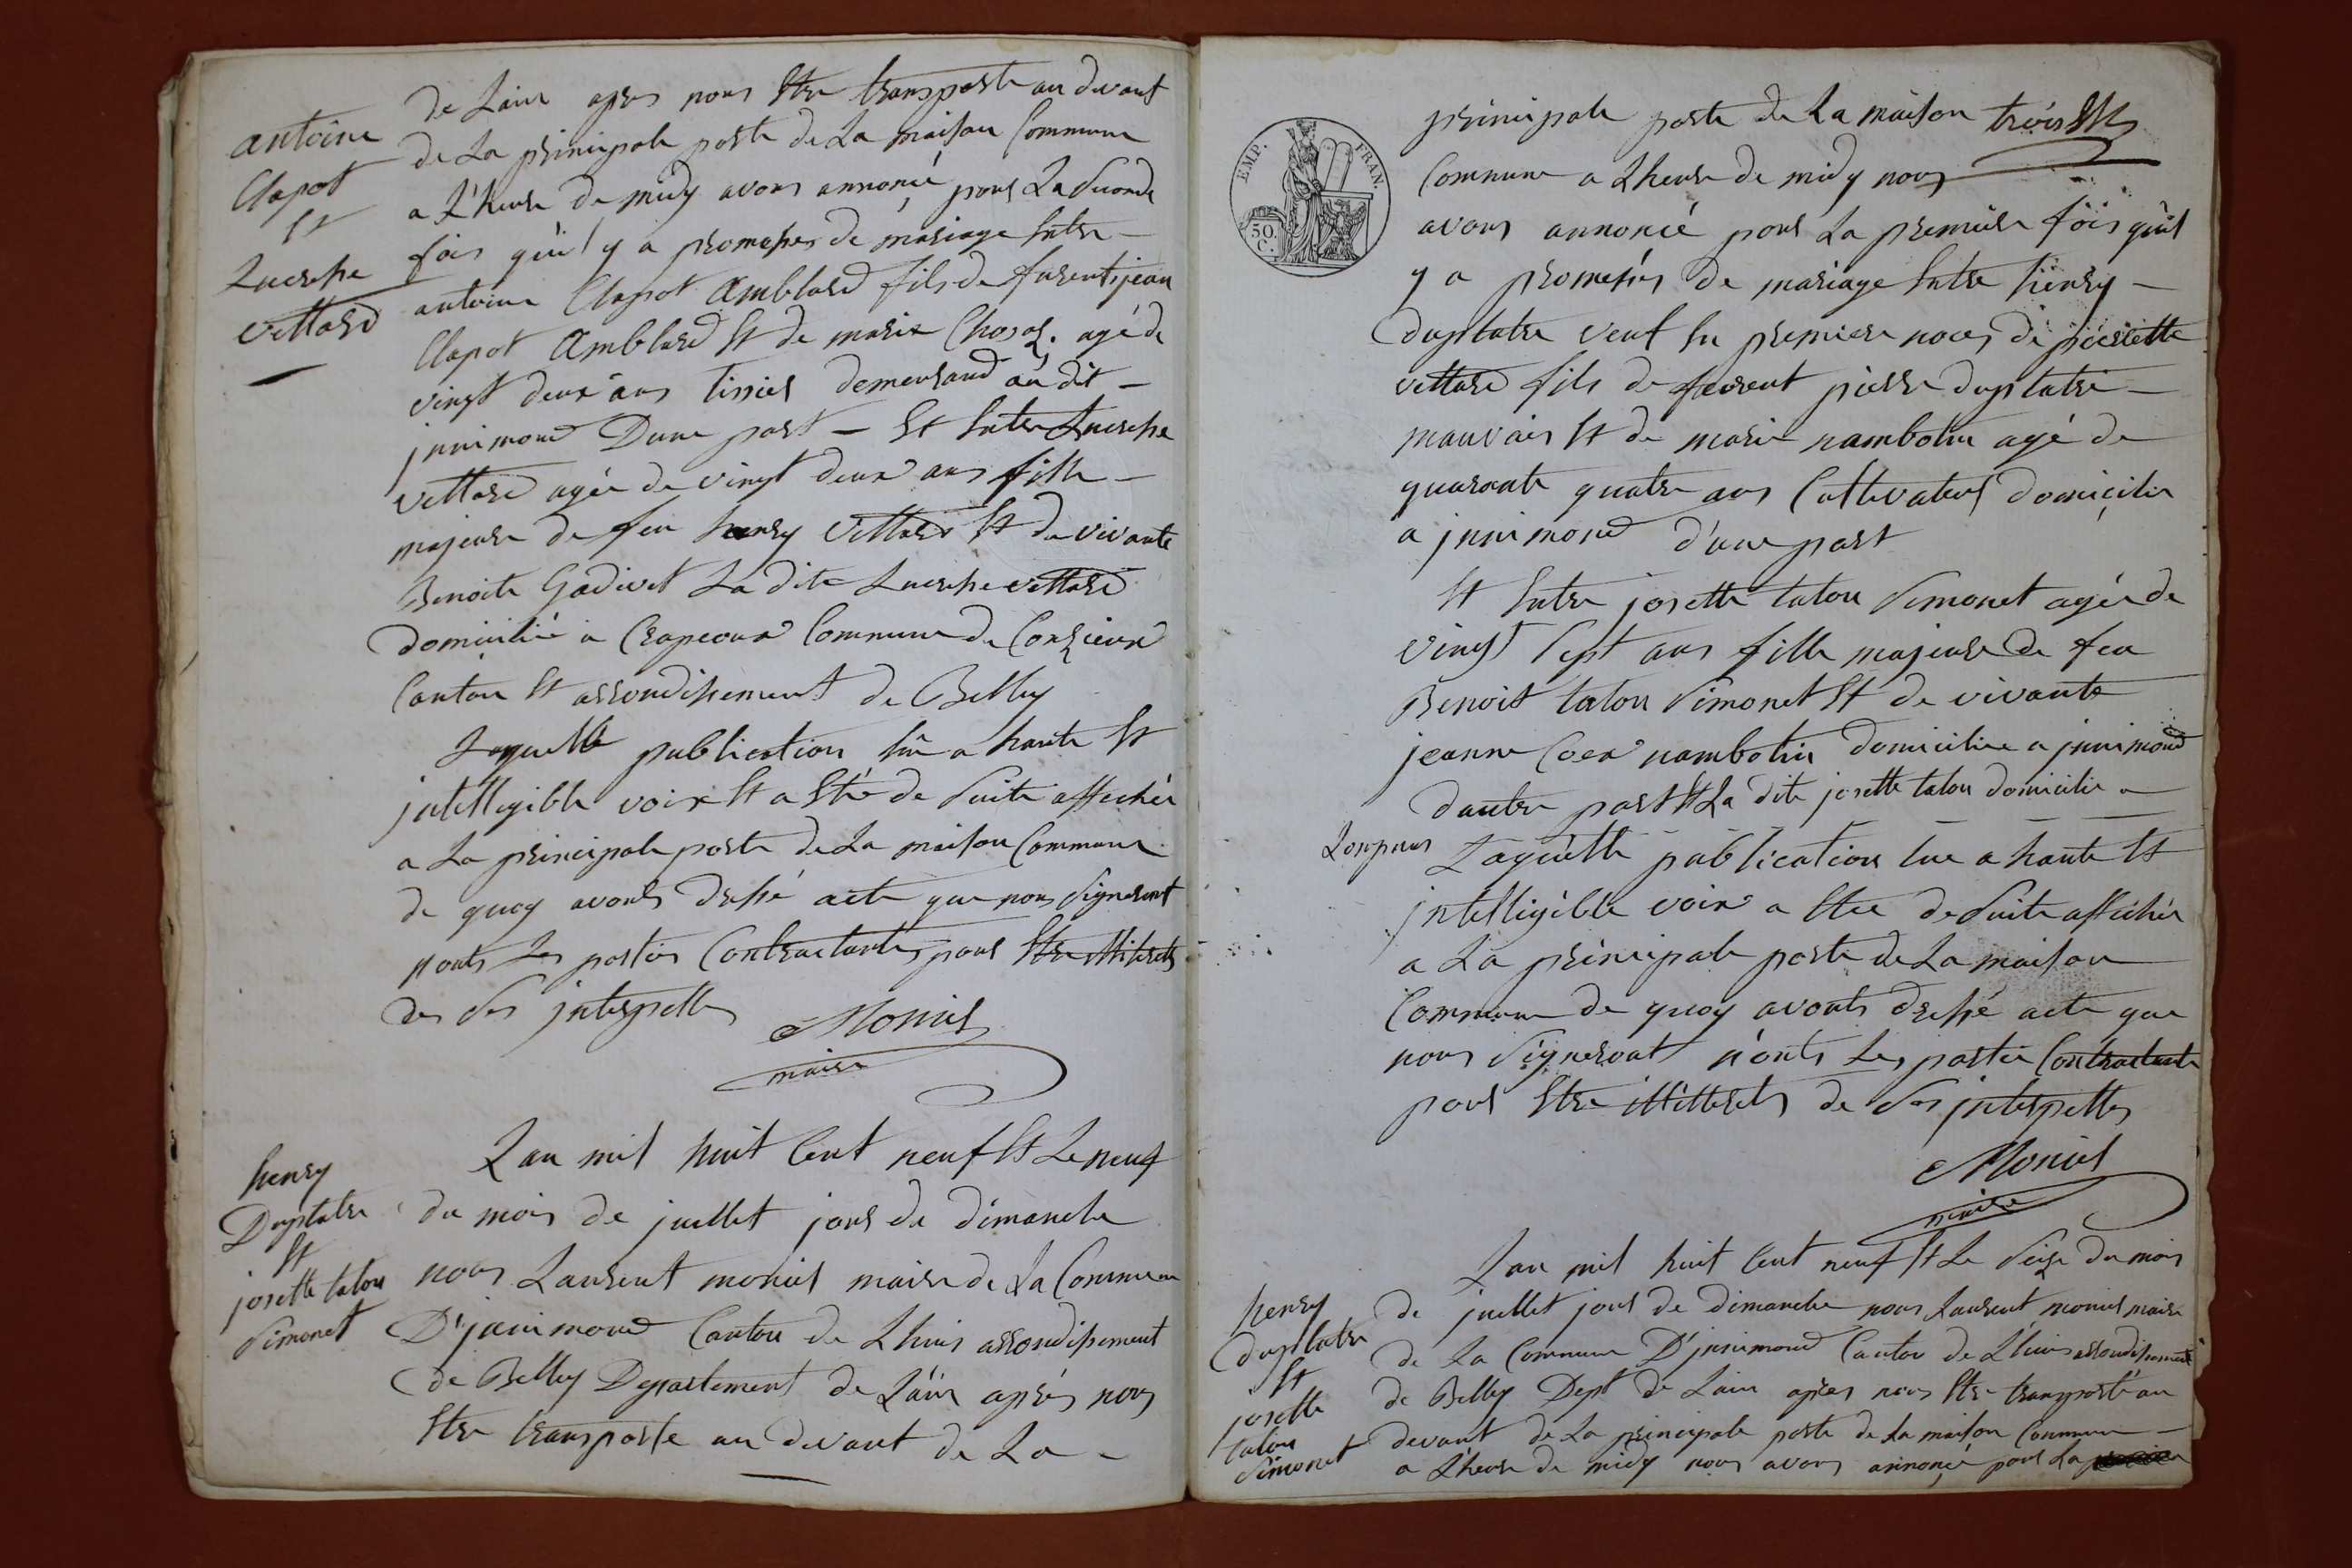 antoine
Clapot
Et
Lucresse
vettard
de Lain apres nous Etre transporte au devant
de La principale porte de La maison Commune
a L'heure de midy avons annoncé pour La seconde
fois quil y a promesses de mariage Entre
antoine Clapot Amblard fils de furent jean
Clapot Amblard Et de marie Chosal. agé de
vingt deux ans tissier demeurand au dit
jnnimond Dune part - Et Entre Lucresse
vettard agée de vingt deux ans fille
majeure de feu henry vettard Et de vivante
Benoite Godivet La dite Lucresse vettard
domicilié a Crapeoux Commune de Conzieux
Canton Et arrondissement de Belley
Laquelle publication lue a haute Et
jntelligible voix Et a Eté de suite affichée
a La principale porte de La maison Commune
de quoy avonts dressé acte que nous signeront
nonts Les parties Contractantes pour Etre illiterets
de ses jnterpellés
Monier
maire
henry
Duplatre
Et
josette talon
simonet
Lan mil huit Cent neuf Et Le neuf
du mois de juillet jour de dimanche
nous Laurent monier maire de La Commune
D'jnnimond Canton de Lhuis arrondissement
de Belley Departement de Lain après nous
Etre transporte au devant de La
EMP. FRAN.
50. C.
principale porte de La maison trois Et
Commune a Lheure de midy nous
avons annoncé pour La premiere fois quil
y a promesses de mariage Entre henry
duplatre veuf En premiere noces de pierrette
vettard fils de furent pierre duplatre
mauvais Et de marie nambotin agé de
quarante quatre ans Cultivateur domicilie
a jnnimond d'une part
Et Entre josette talon simonet agée de
vingt sept ans fille majeure de feu
Benoit talon simonet Et de vivante
jeanne Coex nambotin domicilie a jnnimond
dautre part Et La dite josette talon domicilie a
Lonpnas Laquelle publication lue a haute Et
jntelligible voix a Etee de suite affichée
a La principale porte de La maison
Commune de quoy avonts dressé acte que
nous signeront n'onts Les partie Contractante
pour Etre illitterets de ses jnterpellés
Monier
maire
henry
duplatre
Et
josette
talon
simonet
Lan mil huit Cent neuf Et Le seize du mois
de juillet jour de dimanche nous Laurent monier maire
de La Commune D'jnnimond Canton de Lhuis arrondissement
de Belley Dept de Lain apres nous Etre transporté au
devant de La principale porte de La maison Commune
a L'heure de midy nous avons annoncé pour La